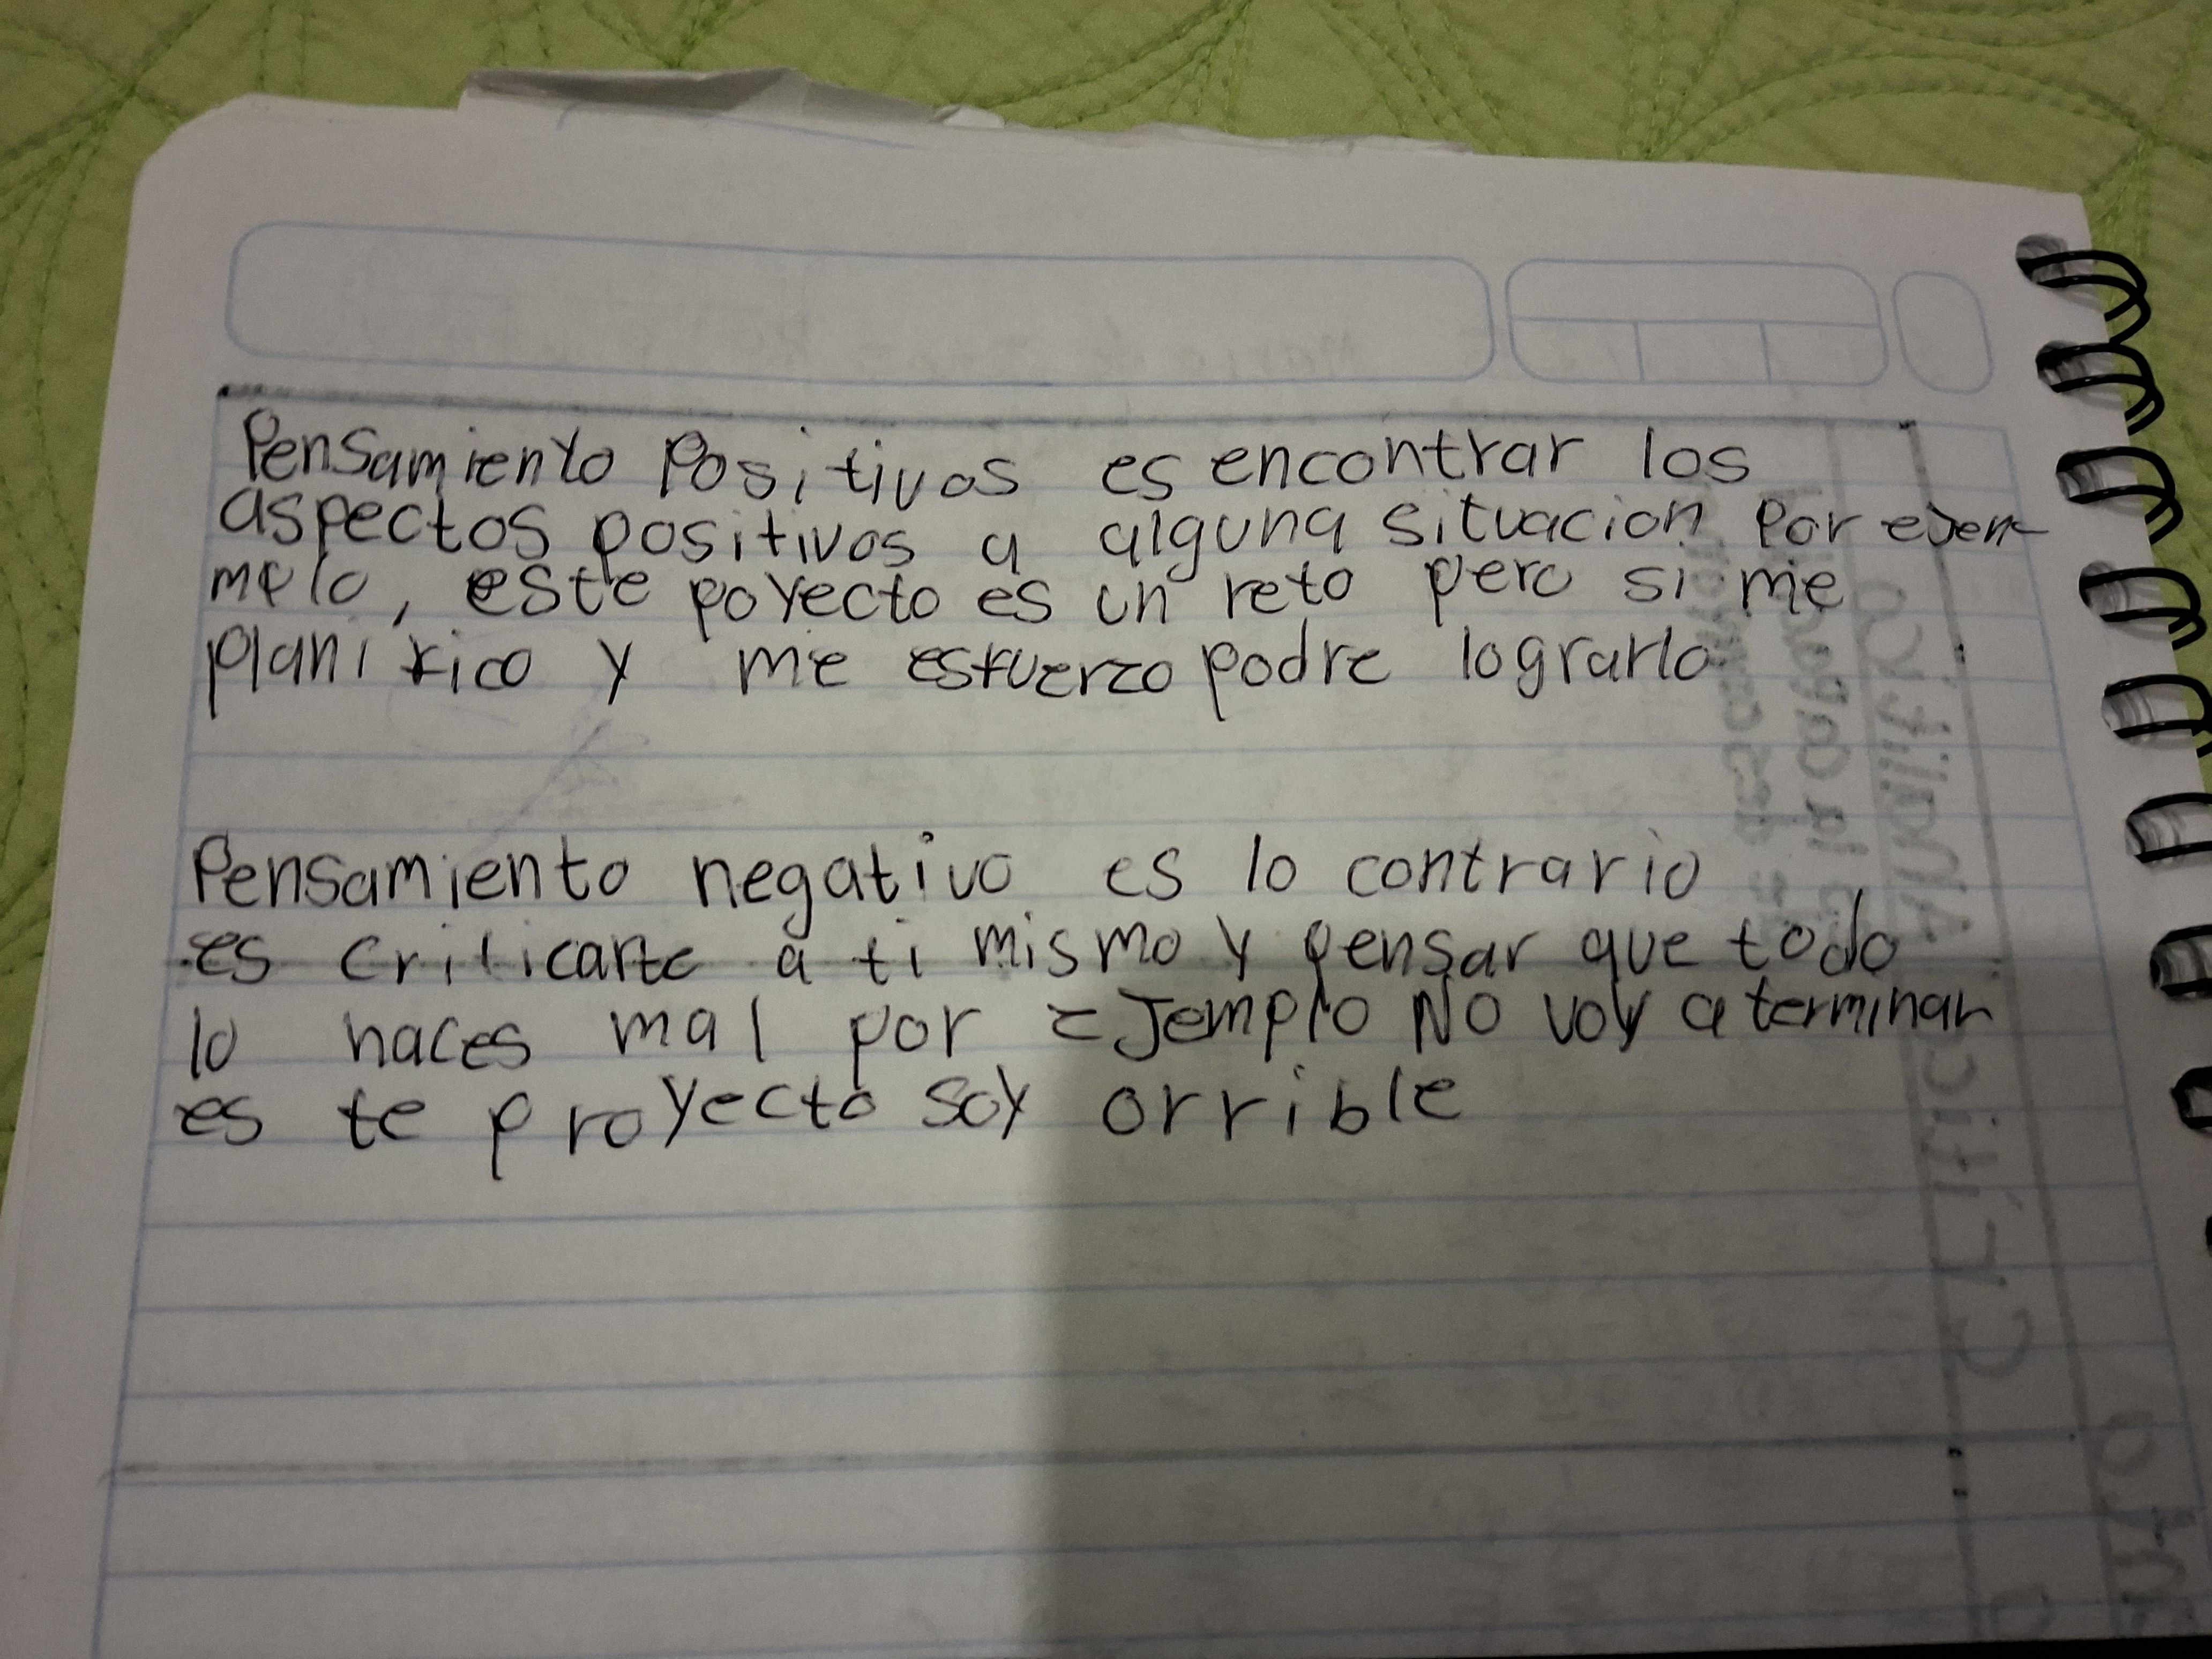 Pensamiento Positivos es encontrar los
aspectos positivos a alguna situacion Por ejem-
mplo, este poyecto es un reto pero si me
planifico y me esfuerzo podre lograrlo
Pensamiento negativo es lo contrario
es criticarte a ti mismo y pensar que todo
lo haces mal por Ejemplo NO voy a terminar
es te proyecto soy orrible